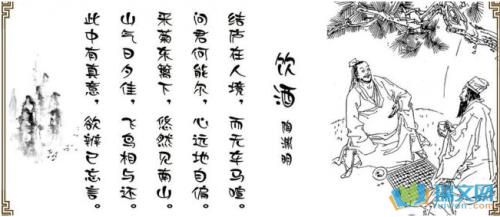 饮酒
陶渊明
结庐在人境，而无车马喧。
问君何能尔，心远地自偏。
采菊东篱下，悠然见南山。
山气日夕佳，飞鸟相与还。
此中有真意，欲辨已忘言。
瑞文网